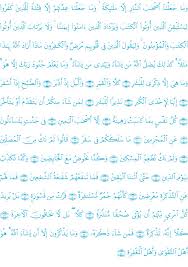 وَمَا جَعَلْنَآ أَصْحَٰبَ ٱلنَّارِ إِلَّا مَلَٰٓئِكَةً وَمَا جَعَلْنَا عِدَّتَهُمْ إِلَّا فِتْنَةً لِّلَّذِينَ كَفَرُوا۟
لِيَسْتَيْقِنَ ٱلَّذِينَ أُوتُوا۟ ٱلْكِتَٰبَ وَيَزْدَادَ ٱلَّذِينَ ءَامَنُوٓا۟ إِيمَٰنًا وَلَا يَرْتَابَ ٱلَّذِينَ أُوتُوا۟
ٱلْكِتَٰبَ وَٱلْمُؤْمِنُونَ وَلِيَقُولَ ٱلَّذِينَ فِى قُلُوبِهِم مَّرَضٌ وَٱلْكَٰفِرُونَ مَاذَآ أَرَادَ ٱللَّهُ بِهَٰذَا
مَثَلًا كَذَٰلِكَ يُضِلُّ ٱللَّهُ مَن يَشَآءُ وَيَهْدِى مَن يَشَآءُ وَمَا يَعْلَمُ جُنُودَ رَبِّكَ إِلَّا هُوَ
وَمَا هِىَ إِلَّا ذِكْرَىٰ لِلْبَشَرِ كَلَّا وَٱلْقَمَرِ وَٱلَّيْلِ إِذْ أَدْبَرَ وَٱلصُّبْحِ إِذَآ أَسْفَرَ
إِنَّهَا لَإِحْدَى ٱلْكُبَرِ نَذِيرًا لِّلْبَشَرِ لِمَن شَآءَ مِنكُمْ أَن يَتَقَدَّمَ أَوْ يَتَأَخَّرَ
كُلُّ نَفْسٍۭ بِمَا كَسَبَتْ رَهِينَةٌ إِلَّآ أَصْحَٰبَ ٱلْيَمِينِ فِى جَنَّٰتٍ يَتَسَآءَلُونَ
عَنِ ٱلْمُجْرِمِينَ مَا سَلَكَكُمْ فِى سَقَرَ قَالُوا۟ لَمْ نَكُ مِنَ ٱلْمُصَلِّينَ
وَلَمْ نَكُ نُطْعِمُ ٱلْمِسْكِينَ وَكُنَّا نَخُوضُ مَعَ ٱلْخَآئِضِينَ وَكُنَّا نُكَذِّبُ
بِيَوْمِ ٱلدِّينِ حَتَّىٰٓ أَتَىٰنَا ٱلْيَقِينُ فَمَا تَنفَعُهُمْ شَفَٰعَةُ ٱلشَّٰفِعِينَ فَمَا لَهُمْ
عَنِ ٱلتَّذْكِرَةِ مُعْرِضِينَ كَأَنَّهُمْ حُمُرٌ مُّسْتَنفِرَةٌ فَرَّتْ مِن قَسْوَرَةٍۭ
بَلْ يُرِيدُ كُلُّ ٱمْرِئٍ مِّنْهُمْ أَن يُؤْتَىٰ صُحُفًا مُّنَشَّرَةً كَلَّا بَل لَّا يَخَافُونَ ٱلْءَاخِرَةَ
كَلَّآ إِنَّهُۥ تَذْكِرَةٌ فَمَن شَآءَ ذَكَرَهُۥ وَمَا يَذْكُرُونَ إِلَّآ أَن يَشَآءَ ٱللَّهُ هُوَ
أَهْلُ ٱلتَّقْوَىٰ وَأَهْلُ ٱلْمَغْفِرَةِ